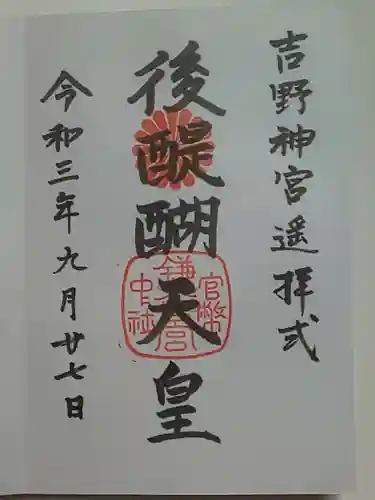 吉野神宮遥拝式
後醍醐天皇
令和三年九月廿七日
官幣
鎌倉宮
中社